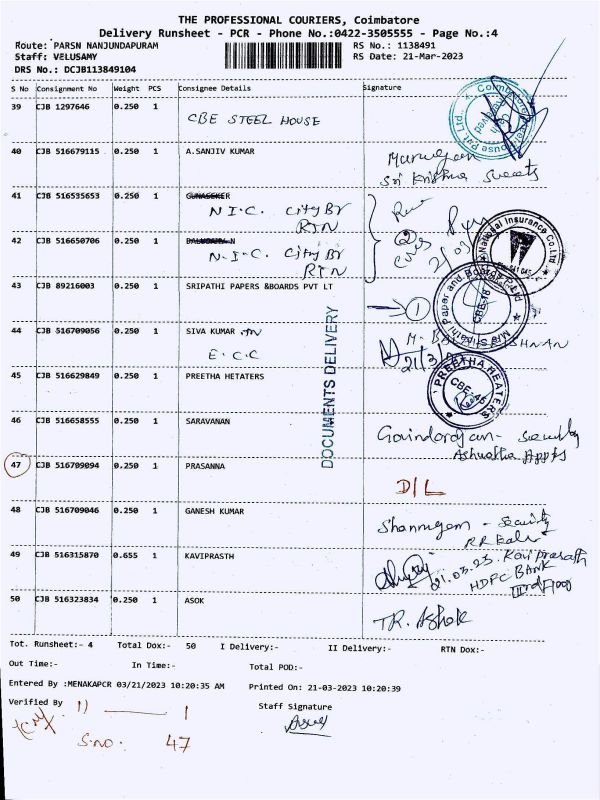 THE PROFESSIONAL COURIERS, Coimbatore
Delivery Runsheet - PCR - Phone No.:0422-3505555 - Page No.:4
Route: PARSN NANJUNDAPURAM RS No.: 1138491
Staff: VELUSAMY RS Date: 21-Mar-2023
DRS No.: DCJB113849104
S No Consignment No Weight PCS Consignee Details Signature
39 CJB 1297646 0.250 1 CBE STEEL HOUSE
40 CJB 516679115 0.250 1 A.SANJIV KUMAR Murugan
Sri Krishna Sweets
41 CJB 516535653 0.250 1 GUNASEKER
N.I.C. City Br
RTN
42 CJB 516650706 0.250 1
N.I.C. City Br
RTN
National Insurance Co.Ltd
43 CJB 89216003 0.250 1 SRIPATHI PAPERS &BOARDS PVT LT 1
M/s Sripathi Paper and Boards P Ltd
CBE-18
44 CJB 516709056 0.250 1 SIVA KUMAR
E.C.C
DOCUMENTS DELIVERY
45 CJB 516629849 0.250 1 PREETHA HETATERS
PREETHA HEATERS
CBE-45
46 CJB 516658555 0.250 1 SARAVANAN Govindarajan- Security
Ashwatha Appts
47 CJB 516709094 0.250 1 PRASANNA D/L
48 CJB 516709046 0.250 1 GANESH KUMAR Shanmugam - Security
49 CJB 516315870 0.655 1 KAVIPRASTH 21.03.23. Kavi prasath
HDFC BANK
IIIrd Floor
50 CJB 516323834 0.250 1 ASOK TR. Ashok
Tot. Runsheet:- 4 Total Dox:- 50 I Delivery:- II Delivery:- RTN Dox:-
Out Time:- In Time:- Total POD:-
Entered By :MENAKAPCR 03/21/2023 10:20:35 AM Printed On: 21-03-2023 10:20:39
Verified By 1) — 1 Staff Signature
S.no. 47